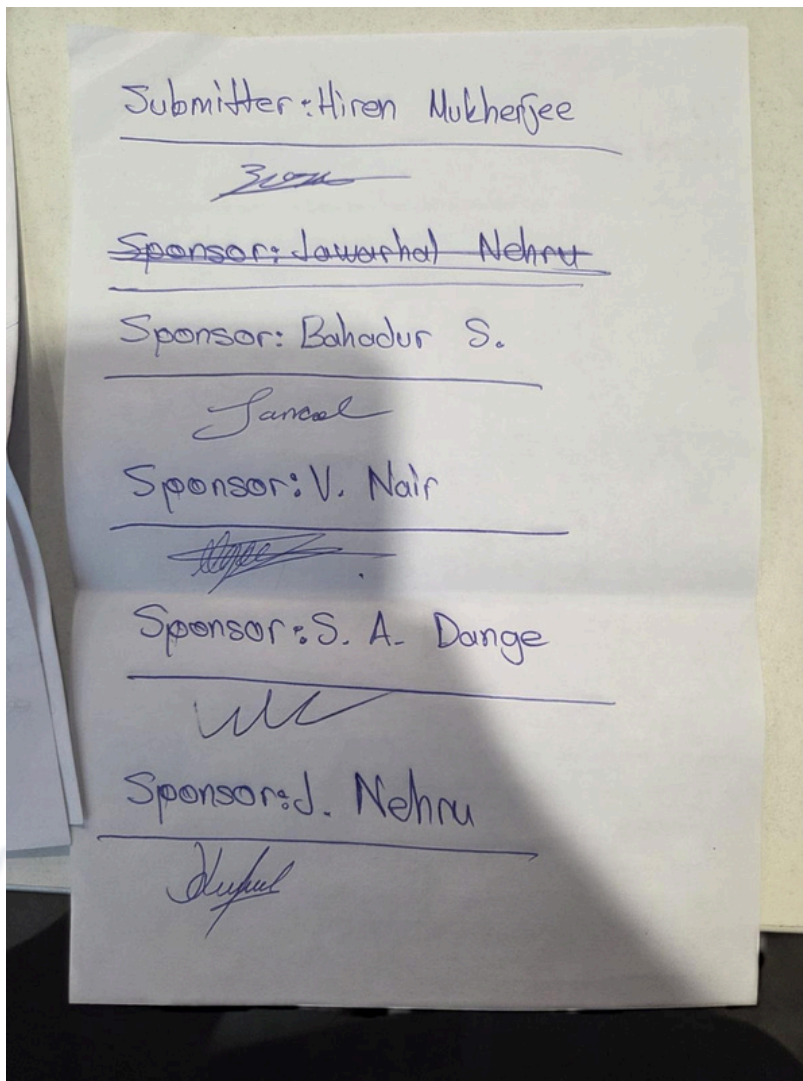 Submitter: Hiren Mukherjee
Sponsor: Jawarhal Nehru
Sponsor: Bahadur S.
Sponsor: V. Nair
Sponsor: S. A. Dange
Sponsor: J. Nehru